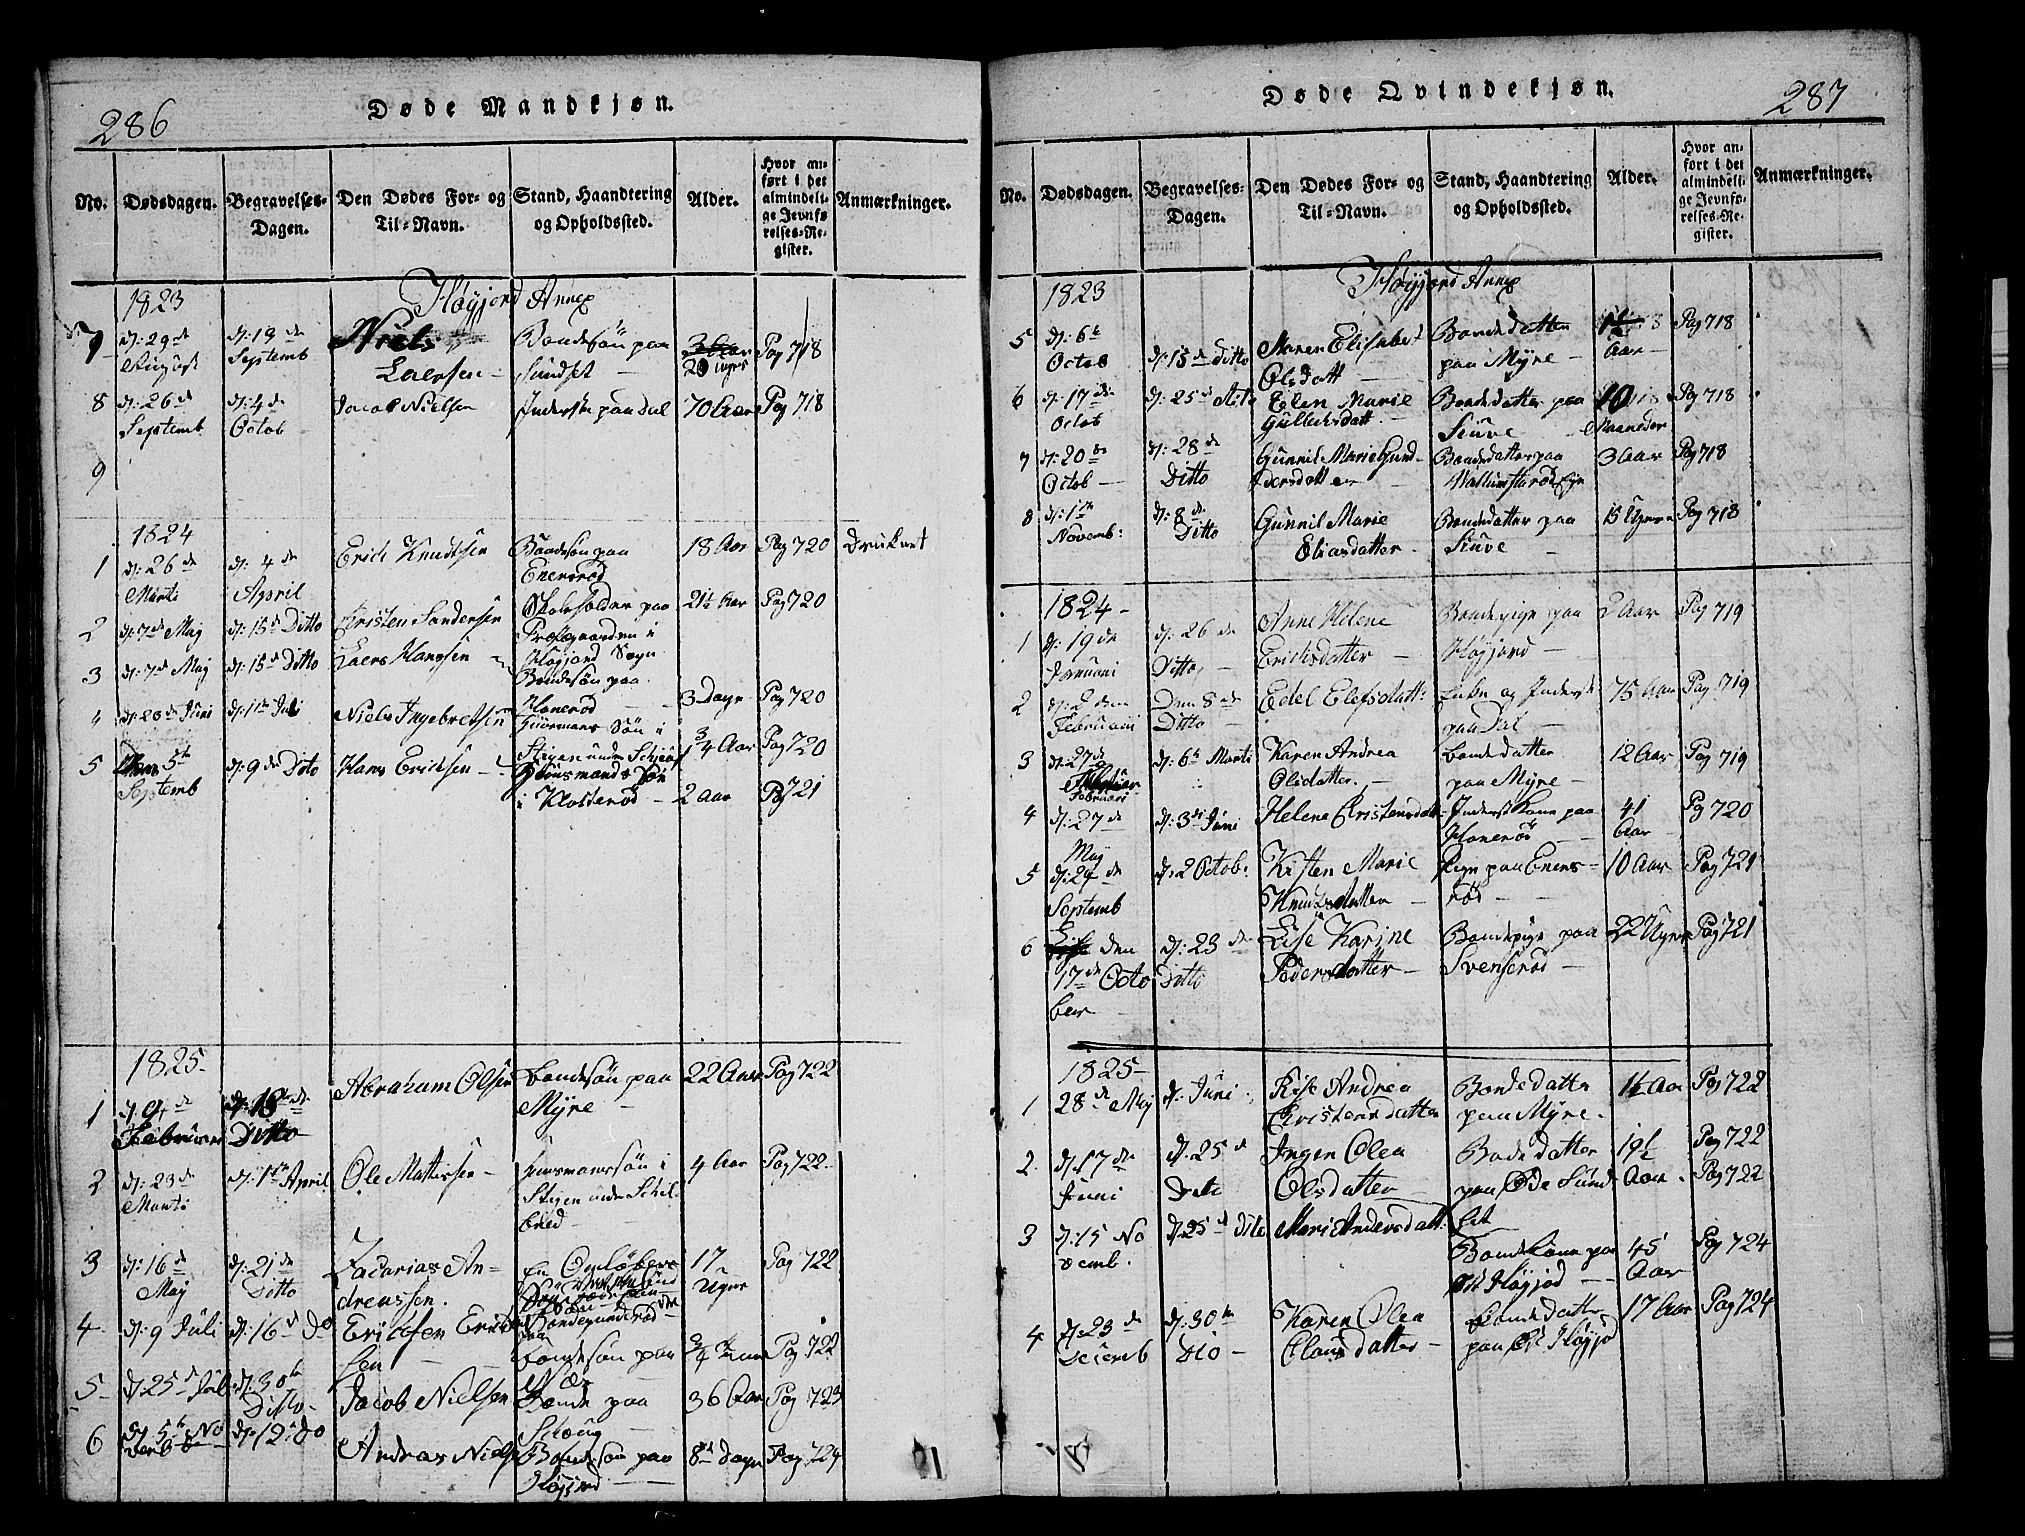 286
Døde Mandkjøn.
No.
Dødsdagen.
Begravelses-
Dagen.
Den Dødes For- og
Til-Navn.
Stand, Haandtering
og Opholdssted.
Alder.
Hvor an-
ført i det
almindeli-
ge Jevnfø-
relses-Re-
gister.
Anmærkninger.
Høyjord Annex
1823
7 d: 29de August d: 19de Septemb Niels Laersen Bondesøn paa Sundset 20 uger Pag 718
8 d: 26de Septemb d: 4de Octob Jacob Nielsen Inderste paa Dal 70 Aar Pag 718
9
1824
1 d: 26de Marti d: 4de April Erich Knudtsen Bondesøn paa Enersrød 18 Aar Pag 720 Druknet
2 d: 7de May d: 15de Ditto Kristen Sandersen Skoleholder paa Prestegaarden i Høyjord Sogn 21½ Aar Pag 720
3 d: 7de May d: 15de Ditto Laers Hanssen Bondesøn paa Hanerød 3 Dage Pag 720
4 d: 26de Juni d: 11te Juli Niels Ingebretsen Huusmans Søn i Stigen under 3/4 Aar Pag 720
5 5te Septemb d: 9de Ditto Hans Ericksen Huusmands Søn i Klosterød 2 Aar Pag 721
1825
1 d: 9de Februari d: 18de Ditto Abraham Olsen Bondesøn paa Myre 22 Aar Pag 722
2 d: 23de Marti d: 1te April Ole Mathissen Huusmanssøn i Stigen under Schilbred 4 Aar Pag 722
3 d: 16de May d: 21de Ditto Zacarias Andreassen En Omløbers 17 Uger Pag 722
4 d: 9 Juli d: 16de Do Ericksen Bondesøn paa 3/4 Pag 722
5 d: 25de Juli d: 30te Ditto Jacob Nielsen Bonde paa Schoug 36 Aar Pag 723
6 d: 5te Novemb d: 12 do Andreas Niels Bondesøn paa Høyjord 8 dage Pag 724
287
Døde Qvindekjøn.
No.
Dødsdagen.
Begravelses-
Dagen.
Den Dødes For- og
Til-Navn.
Stand, Haandtering
og Opholdssted.
Alder.
Hvor an-
ført i det
almindeli-
ge Jevnfø-
relses-Re-
gister.
Anmærkninger.
Høyjord Annex
1823
5 d: 6te Octob d: 15de Ditto Maren Elisabet Olsdatt Bondedatter paa Myre 1½ Aar Pag 718
6 d: 17de Octob d: 25de Dito Elen Marie Gullichsdatt Bondedatter paa Stuve 10 Maaneder Pag 718
7 d: 20de Octob d: 28de Ditto Gunnil Marie Gundersdatter Bondedatter paa 3 Aar Pag 718
8 d: 1te Novemb: d: 8de Ditto Gunnil Marie Eliasdatter Bondedatter paa Stuve 15 Uger Pag 718
1824
1 d: 19de Januari d: 26de Ditto Anne Helene Ericksdatter Bondepige paa Høyjord 2 Aar Pag 719
2 d: 2den Februari Den 8de Ditto Edel Elefsdatt: Enke og Inderst paa Dal 75 Aar Pag 719
3 d: 27de Februari d: 6te Marti Karen Andrea Olsdatter Bondedatter paa Myre 12 Aar Pag 719
4 d: 27de May d: 3de Juni Helene Christensdatt Inderst Kone paa Hanerød 41 Aar Pag 720
5 d: 24de Septemb d: 2 Octob: Kisten Marie Knudtsdatter Pige paa Enersrød 10 Aar Pag 721
6 den 17de October d: 23de Ditto Lise Karine Pedersdatter Bondepige paa Svenserød 22 Uger Pag 721
1825
1 28de May d: Juni Lise Andrea Kristensdatter Bondedatter paa Myre 1½ Aar Pag 722
2 d: 17de Juni d: 25de Dito Ingen Olea Olsdatter Bondedatter paa Øde Sundset 19½ Aar Pag 722
Pag 722
3 d: 15 Novemb. d: 25de Dito Mari Andersdatt: Bondekone paa Høyjod 45 Aar Pag 724
4 d: 23de Decemb d: 30te Dito Karen Olea Clausdatter Bondedatter paa Høyjod 17 Aar Pag 724